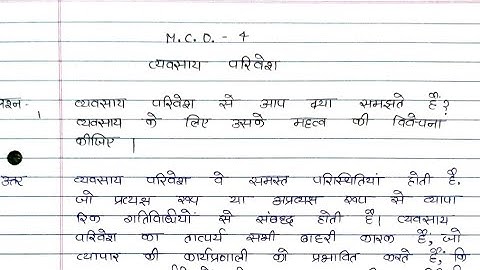 M.C.O. - 4
व्यवसाय परिवेश
प्रश्न. व्यवसाय परिवेश से आप क्या समझते हैं?
1 व्यवसाय के लिए उसके महत्व की विवेचना
कीजिए।
उत्तर व्यवसाय परिवेश वे समस्त परिस्थितियां होती है.
जो प्रत्यक्ष रूप या अप्रत्यक्ष रूप से व्यापा
रिक गतिविधीयों से संबध्द होती हैं। व्यवसाय
परिवेश का तात्पर्य सभी बाहरी कारक हैं; जो
व्यापार की कार्यप्रणाली को प्रभावित करते हैं; कि